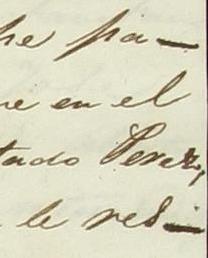 pa—
en el
tado Perez,
le res—